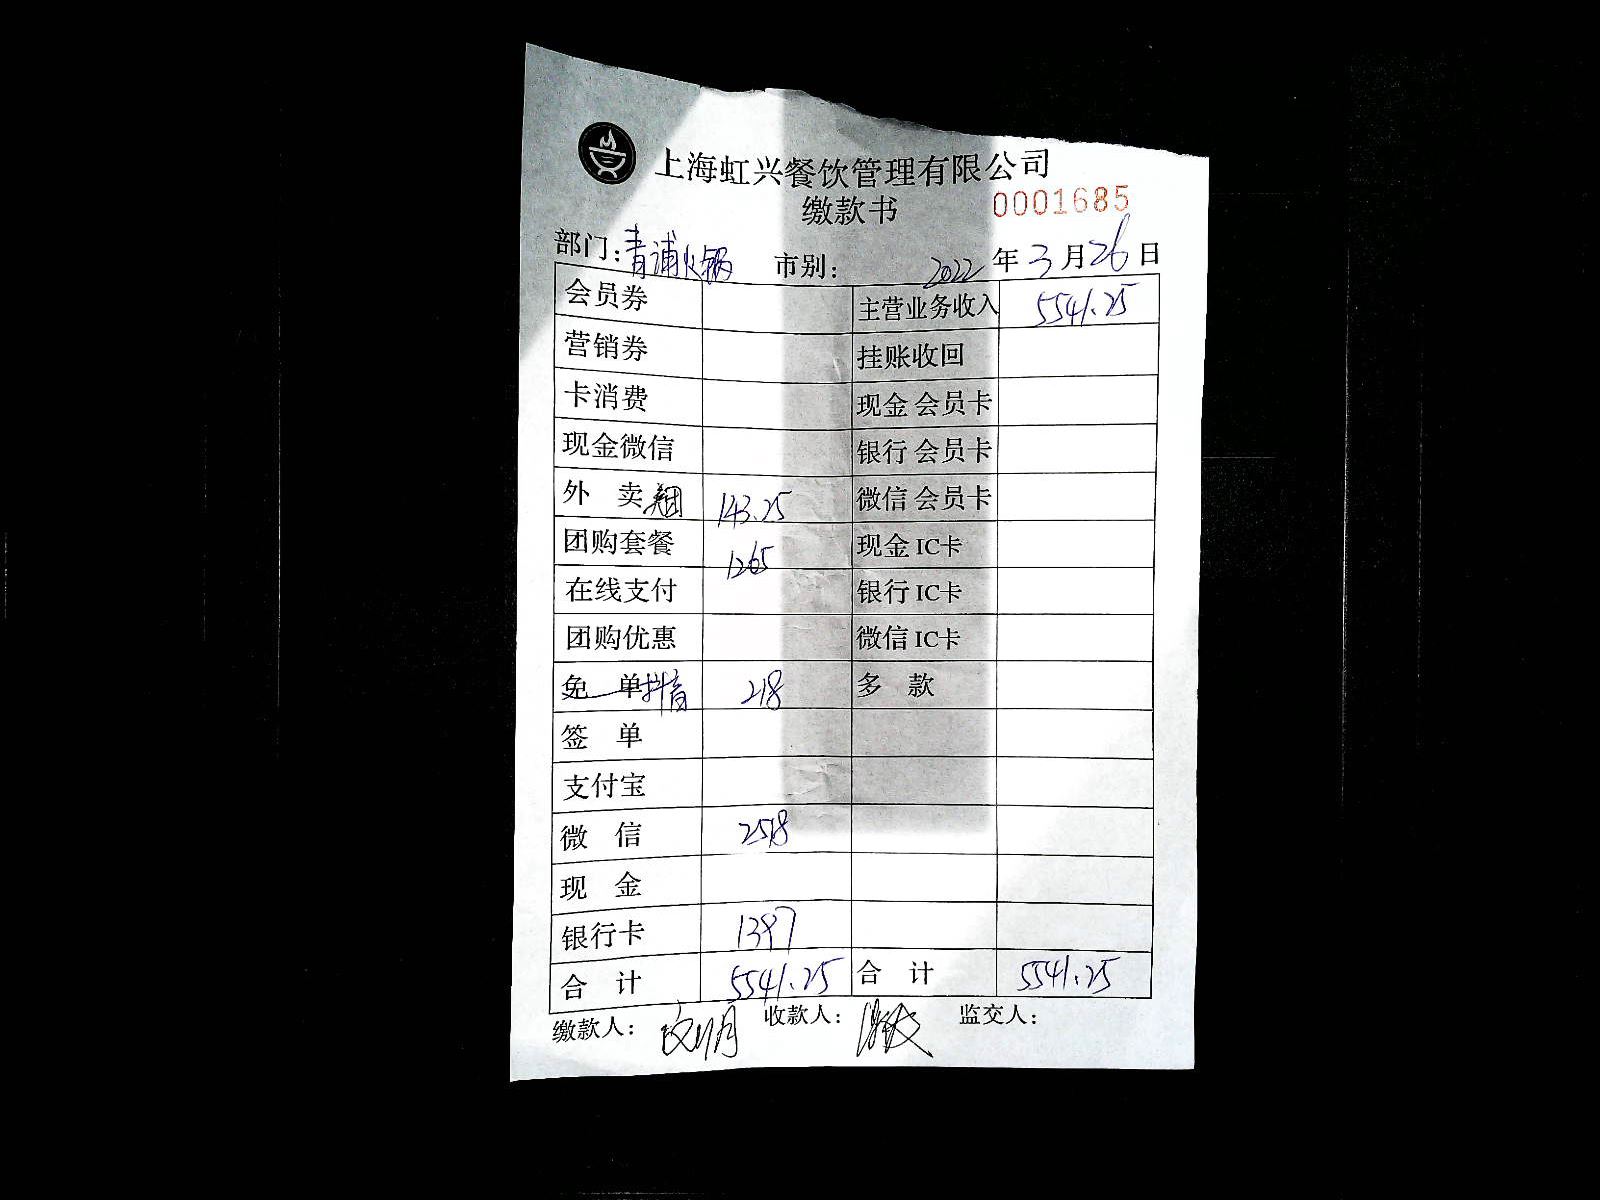 上海虹兴餐饮管理有限公司
缴款书 0001685
部门:青浦火锅 市别: 2022年3月26日
会员券 主营业务收入 5541.25
营销券 挂账收回
卡消费 现金 会员卡
现金微信 银行 会员卡
外 卖美团 143.25 微信 会员卡
团购套餐 1265 现金 IC卡
在线支付 银行 IC卡
团购优惠 微信 IC卡
免 单抖音 218 多 款
签 单
支付宝
微 信 2518
现 金
银行卡 1397
合 计 5541.25 合 计 5541.25
缴款人: 收款人: 监交人: